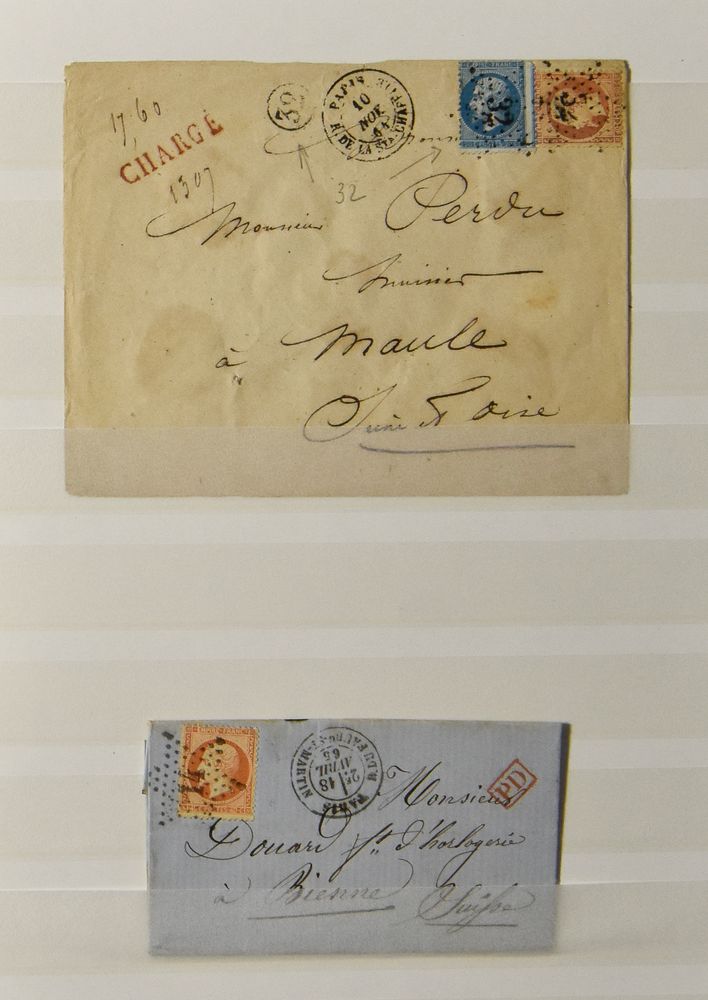 17,60
CHARGÉ
1307
32
PARIS
10
NOV
64
R. DE LA STE CHAPELLE
32
32
32
Monsieur Perdu
huissier
à Maule
Seine et Oise
EMPIRE FRANC
PARIS
R. DU FAUBG ST MARTIN
2E
18
AVRIL
65
PD
Monsieur
Douard ft. d'horlogerie
à Bienne
Suisse